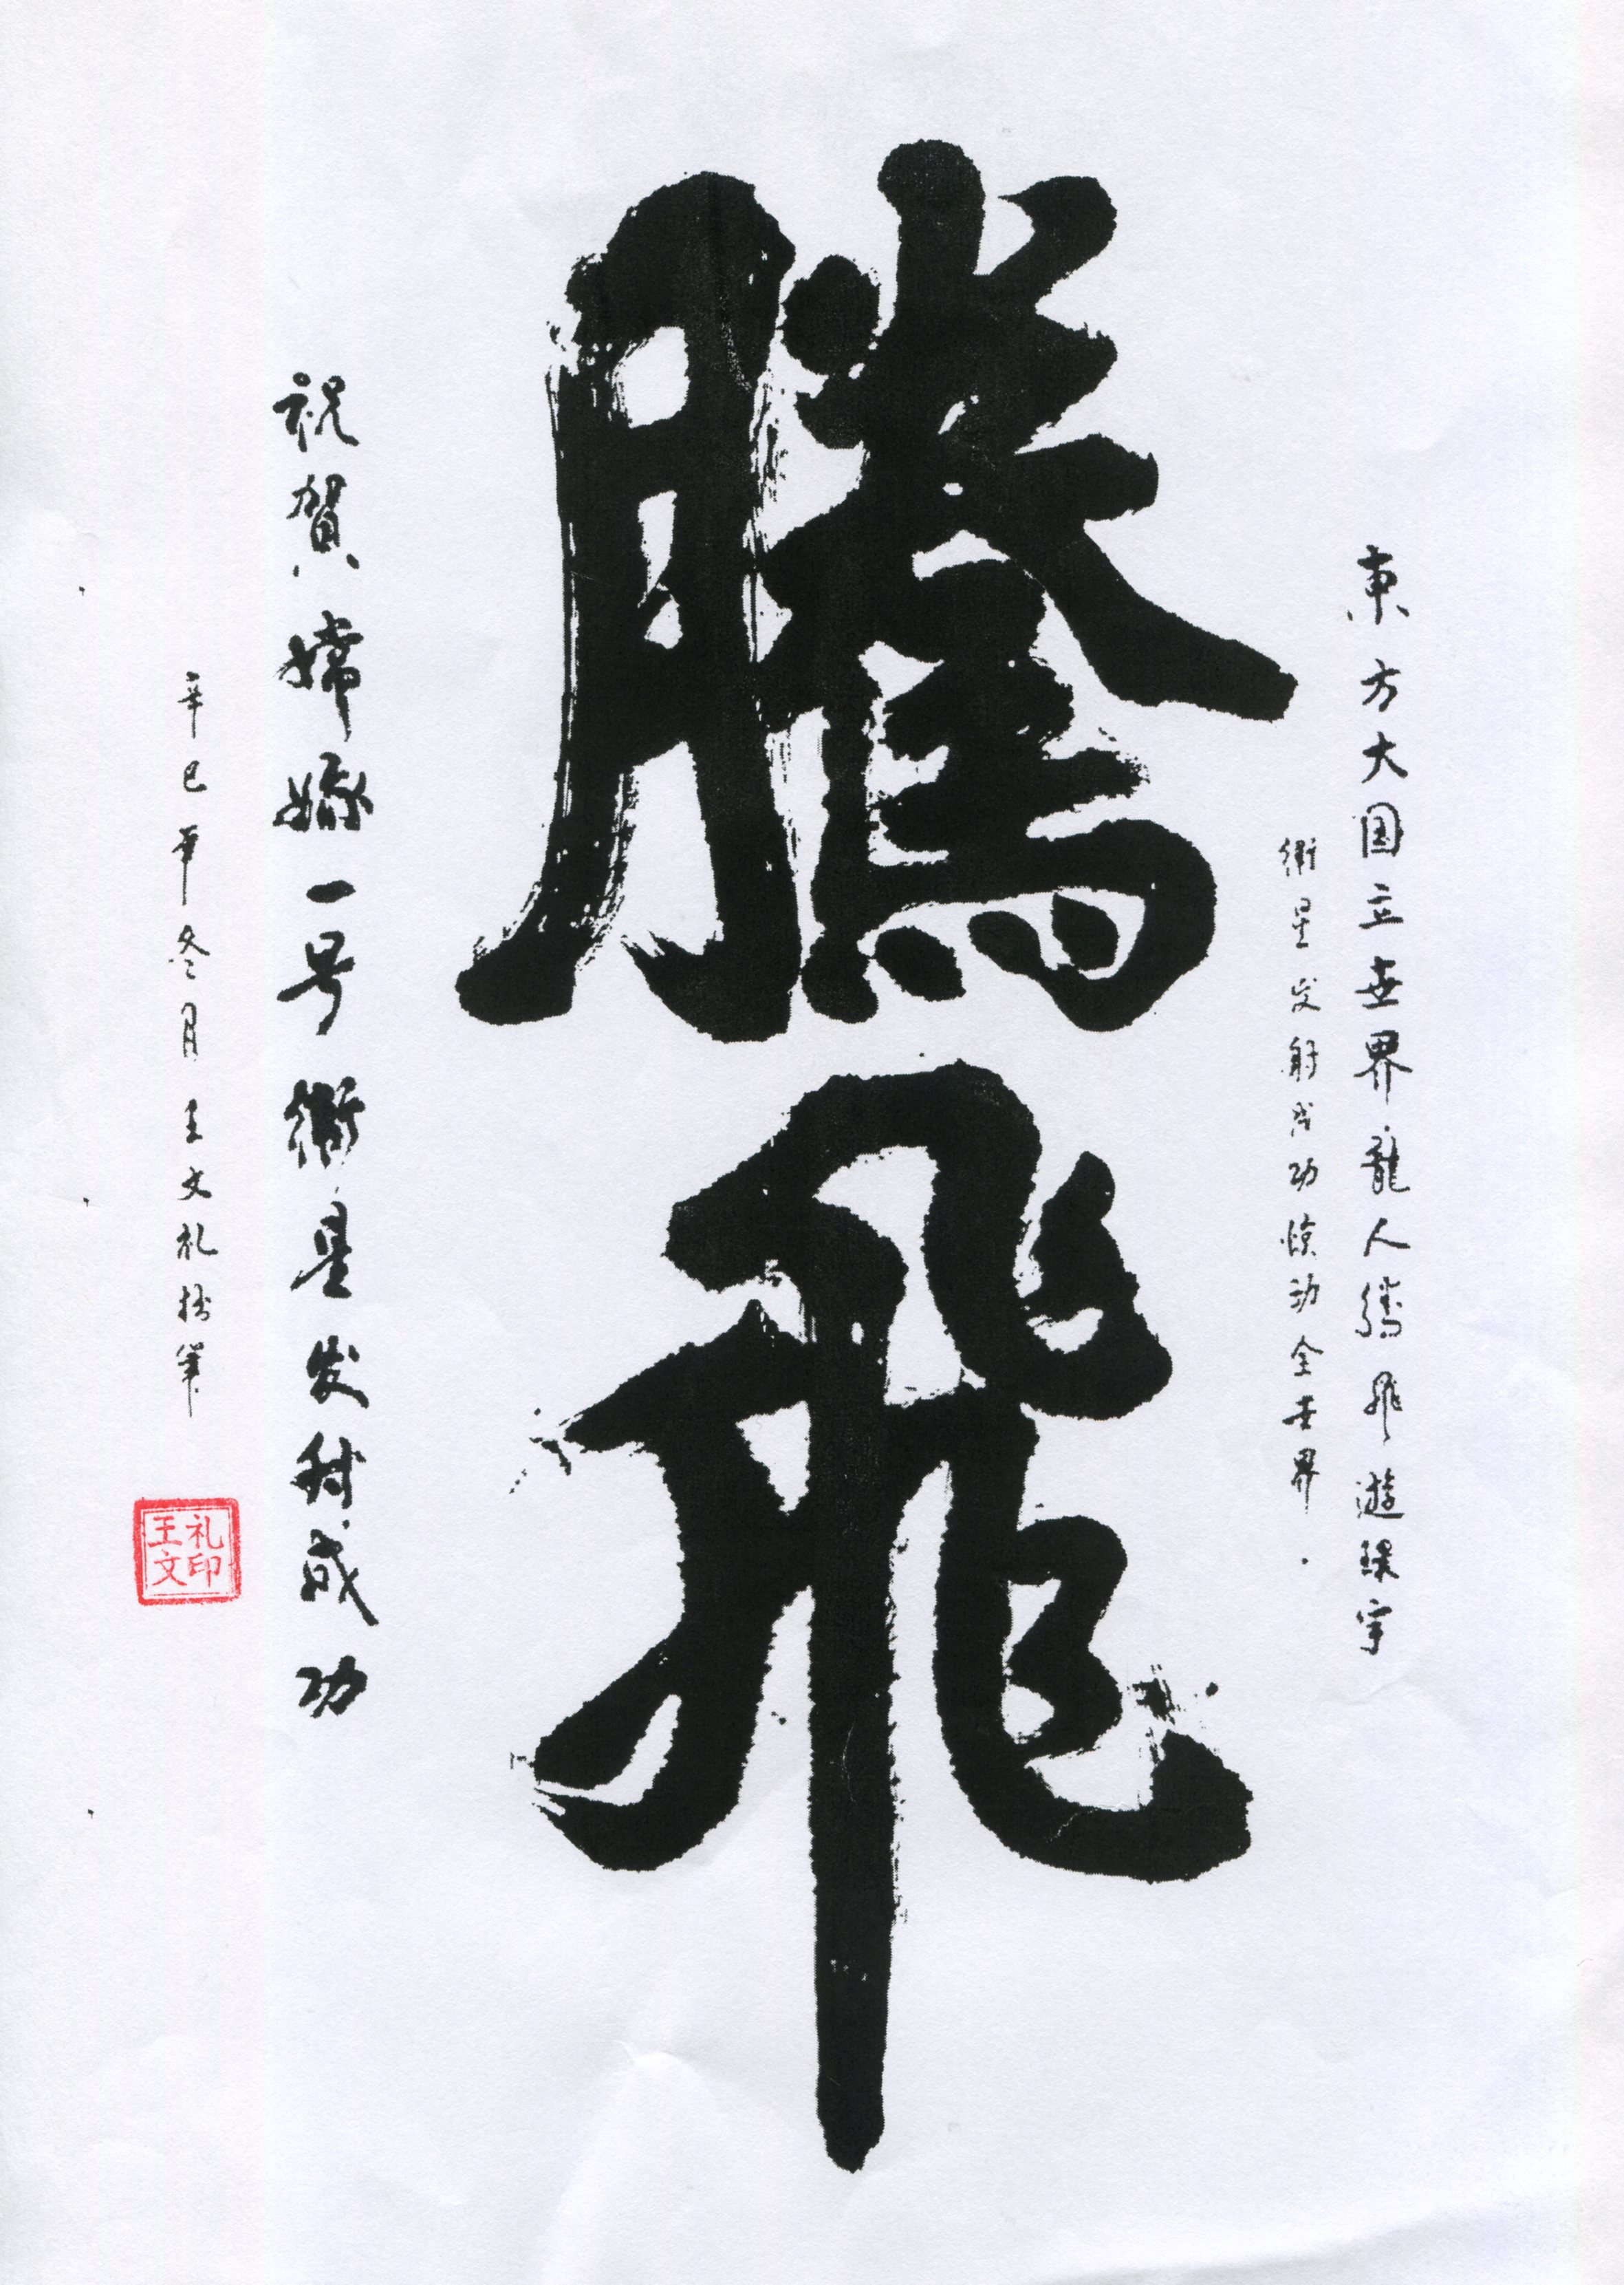 東方大国立世界龍人騰飛遊環宇
衛星发射成功惊动全世界.
騰飛
祝賀嫦娥一号衛星发射成功
辛巳年冬月王文礼拙筆
王文礼印